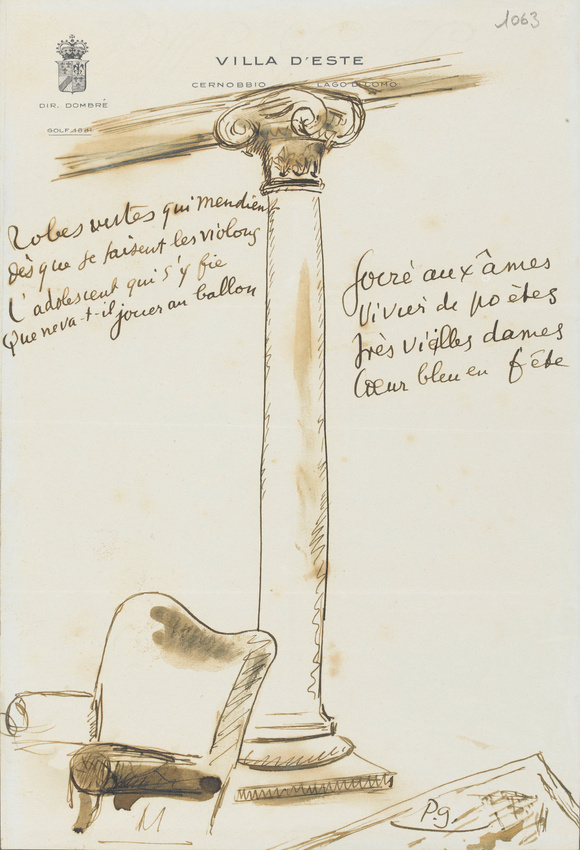 1063
VILLA D'ESTE
CERNOBBIO LAGO DI COMO
DIR. DOMBRÉ
GOLF
Robes vertes qui mendient
Dès que se taisent les violons
L'adolescent qui s'y fie
Que ne va-t-il jouer au ballon
aux âmes
Vivier de poètes
Très vieilles dames
Cœur bleu en fête
P.g.